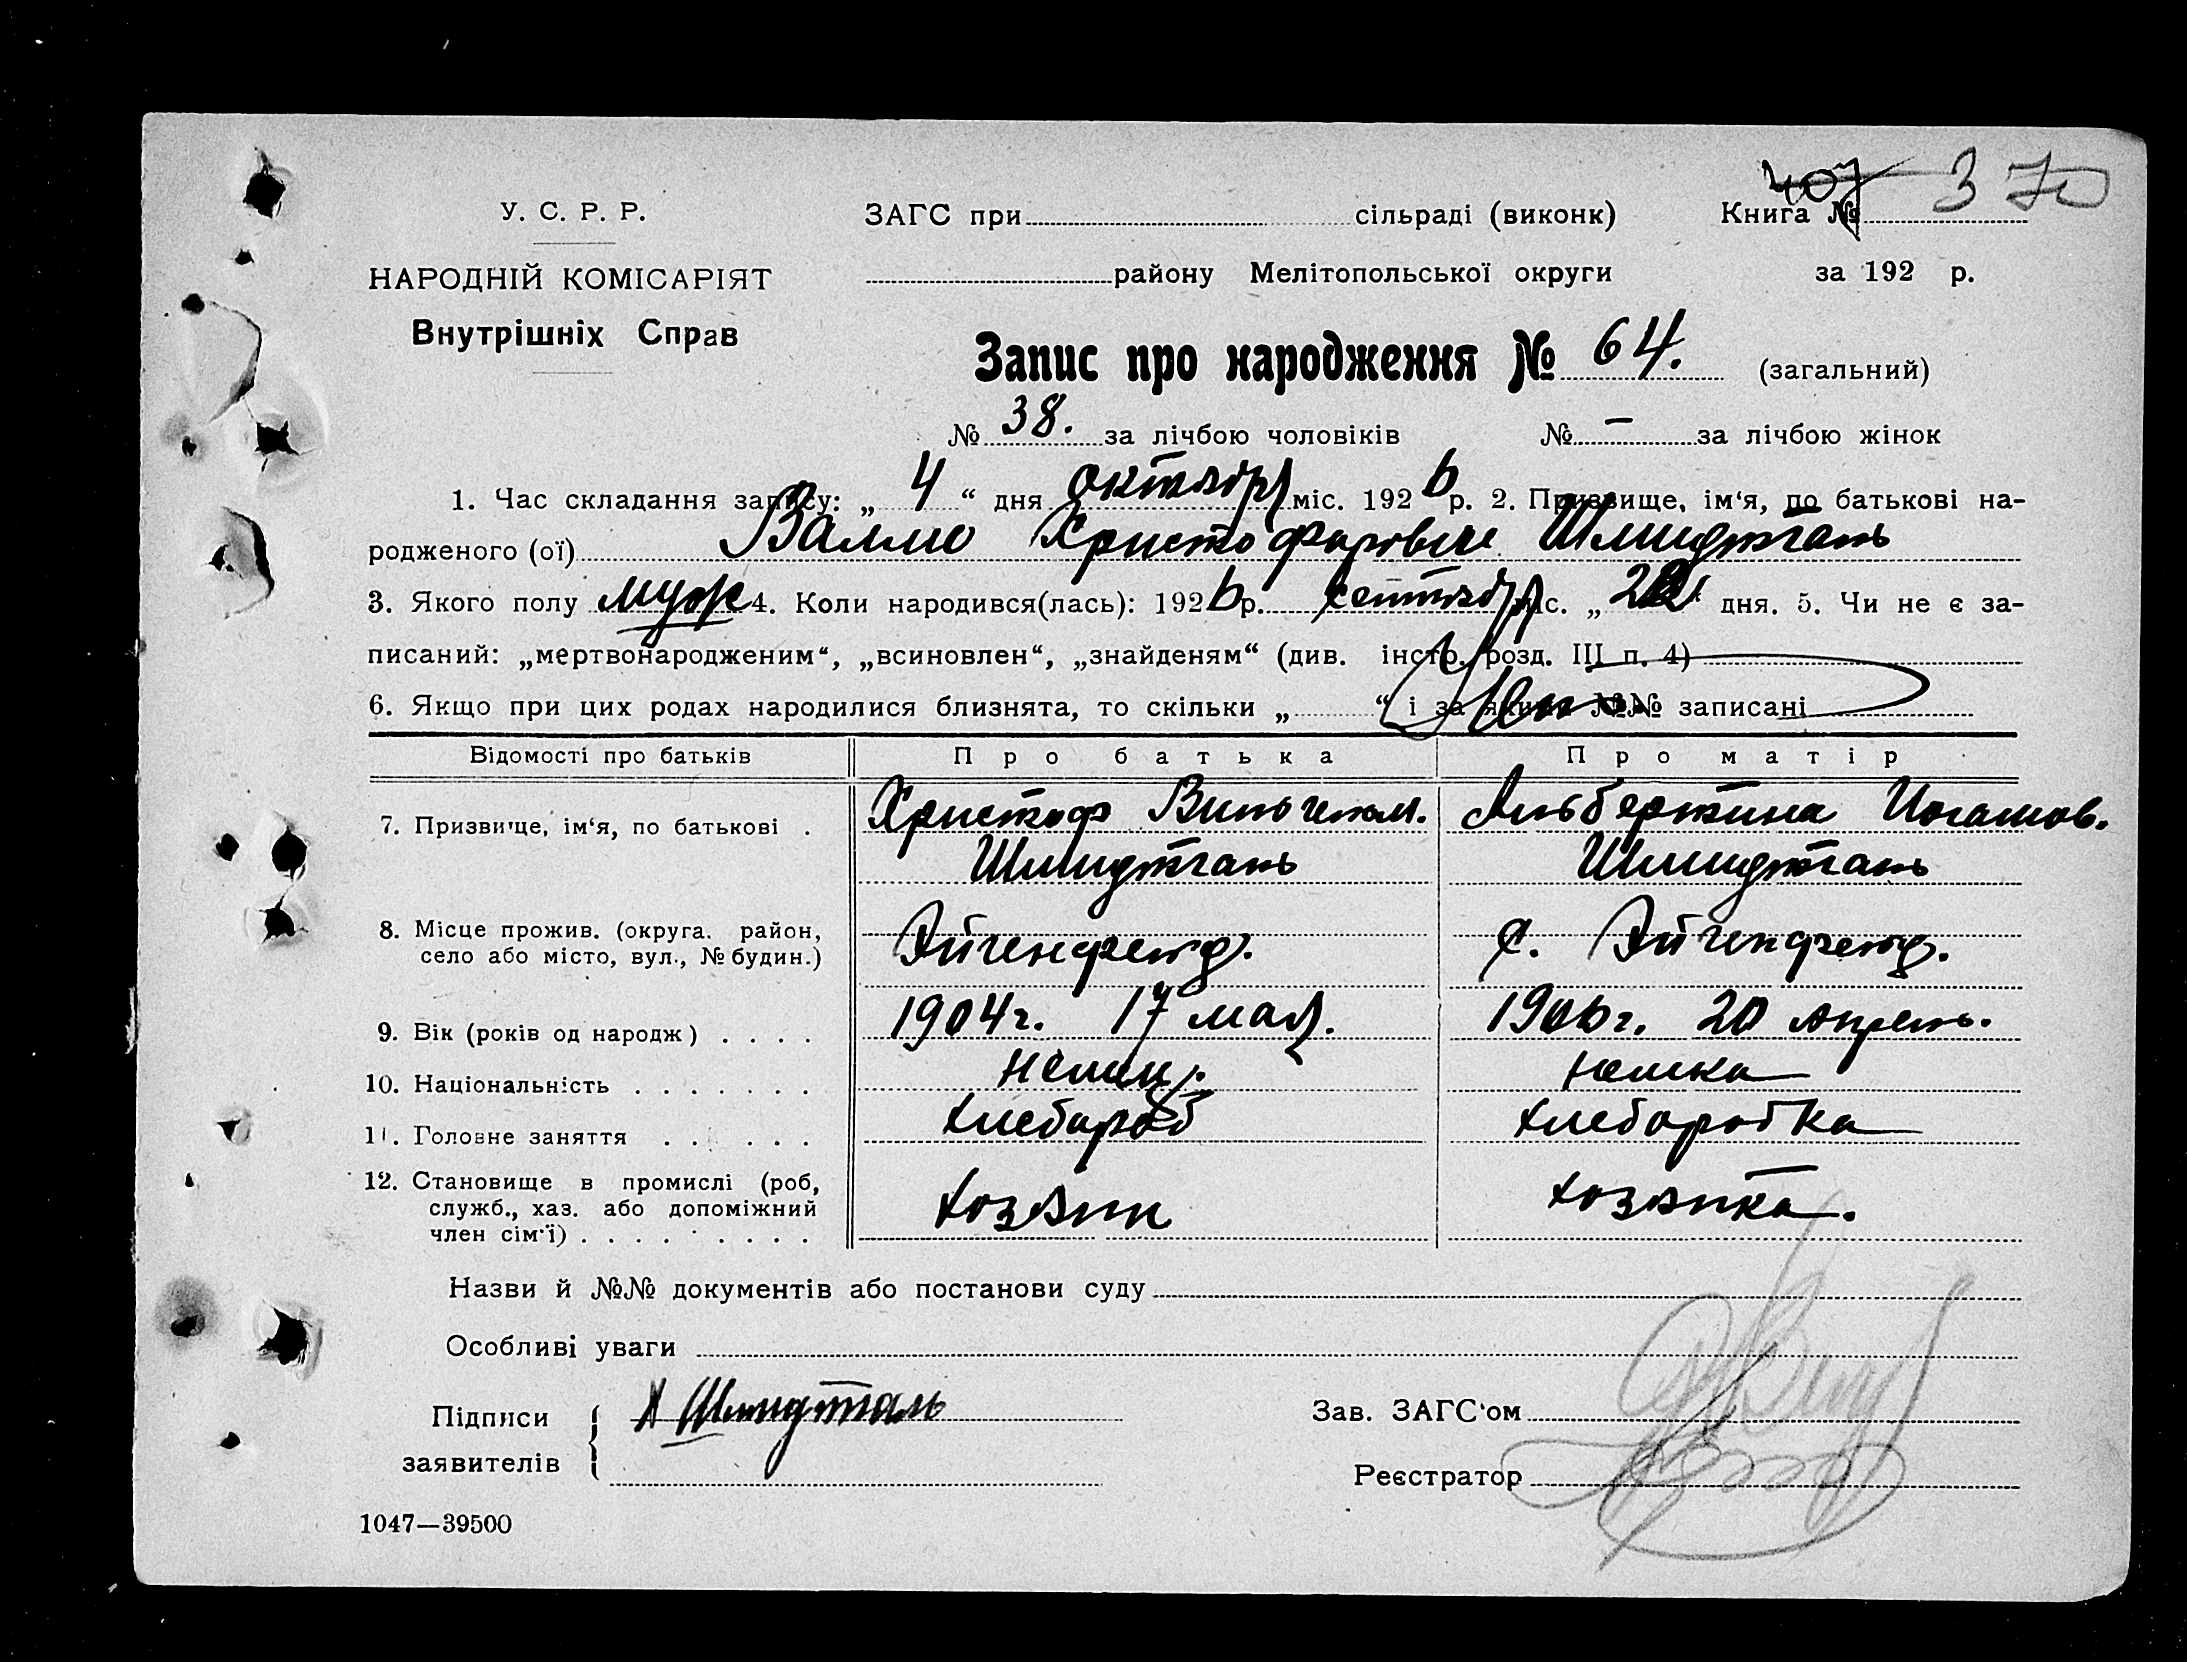 407 370
У. С. Р. Р. ЗАГС при сільраді (виконк) Книга №
НАРОДНІЙ КОМІСАРІЯТ району Мелітопольської округи за 192 р.
Внутрішніх Справ
Запис про народження № 64. (загальний)
№ 38. за лічбою чоловіків № — за лічбою жінок
1. Час складання запису: „ 4 “ дня октября міс. 1926 р. 2. Призвище, ім‘я, по батькові на-
родженого (ої) Христофорович Шмидтгаль
3. Якого полу муж 4. Коли народився(лась): 1926 р. сентября міс. „ “ дня. 5. Чи не є за-
писаний: „мертвонародженим“, „всиновлен“, „знайденям“ (див. інстр. розд. III п. 4)
6. Якщо при цих родах народилися близнята, то скільки „ “ і за якими №№ записані
Відомості про батьків Про батька Про матір
7. Призвище, ім‘я, по батькові . Христоф Вильгельм. Альбертина Иоганов.
Шмидтгаль Шмидтгаль
8. Місце прожив. (округа. район,
село або місто, вул., № будин.) Эйгенфельд. с. Эйгенфельд.
9. Вік (років од народж) . . . . 1904г. 17 мая. 1906г. 20 апрель.
10. Національність . . . . . . . Немец. немка
11. Головне заняття . . . . . . хлебороб хлеборобка
12. Становище в промислі (роб,
служб., хаз. або допоміжний
член сім‘ї) . . . . . . . . . хозяин хозяйка.
Назви й №№ документів або постанови суду
Особливі уваги
Підписи
заявителів Х Шмидтталь
Зав. ЗАГС‘ом
Реєстратор
1047—39500